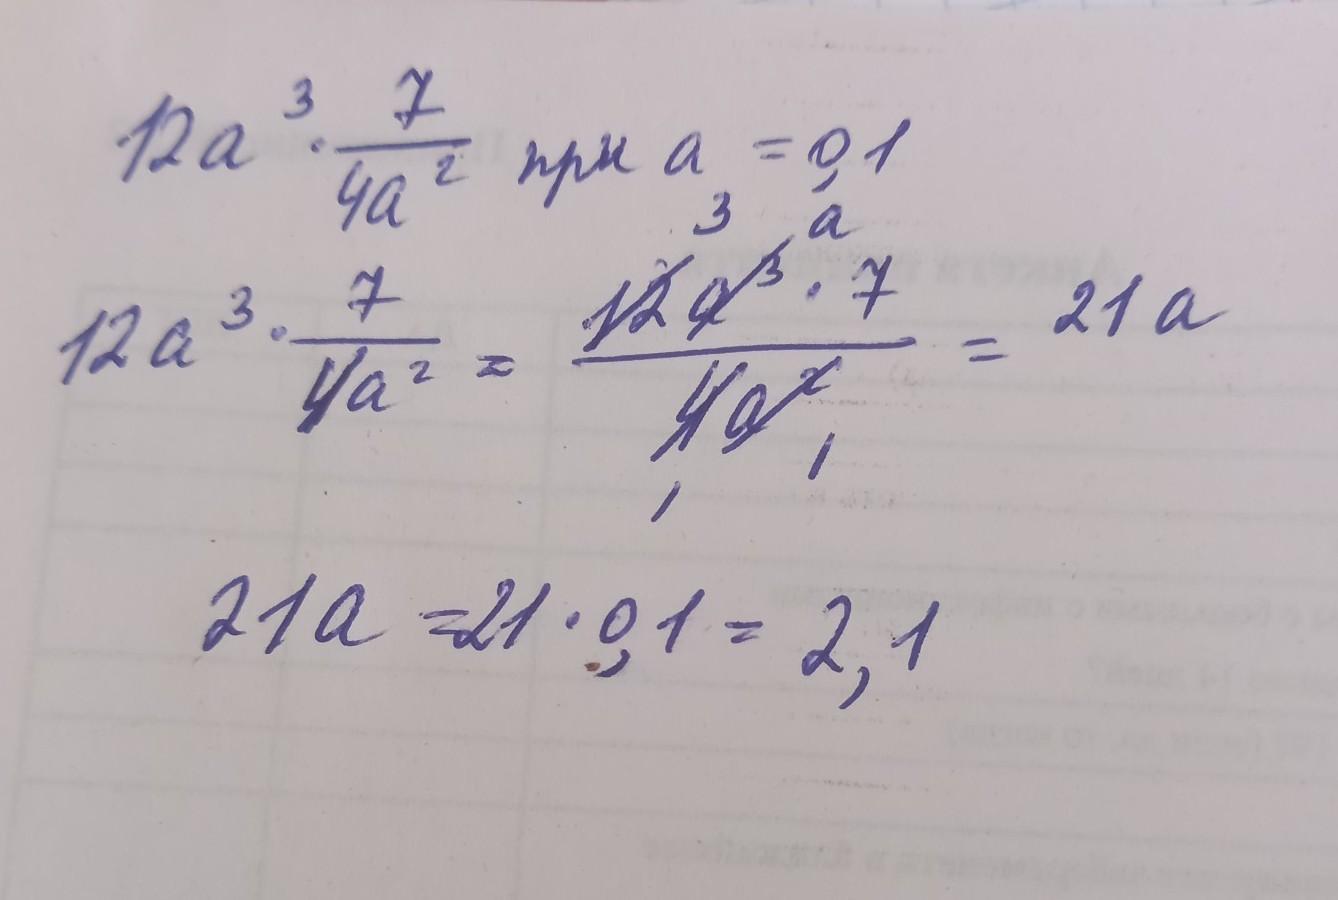 12a³ · 7/4a² при a = 0,1
12a³ · 7/4a² = 12a³ · 7/4a² = 21a
21a = 21 · 0,1 = 2,1